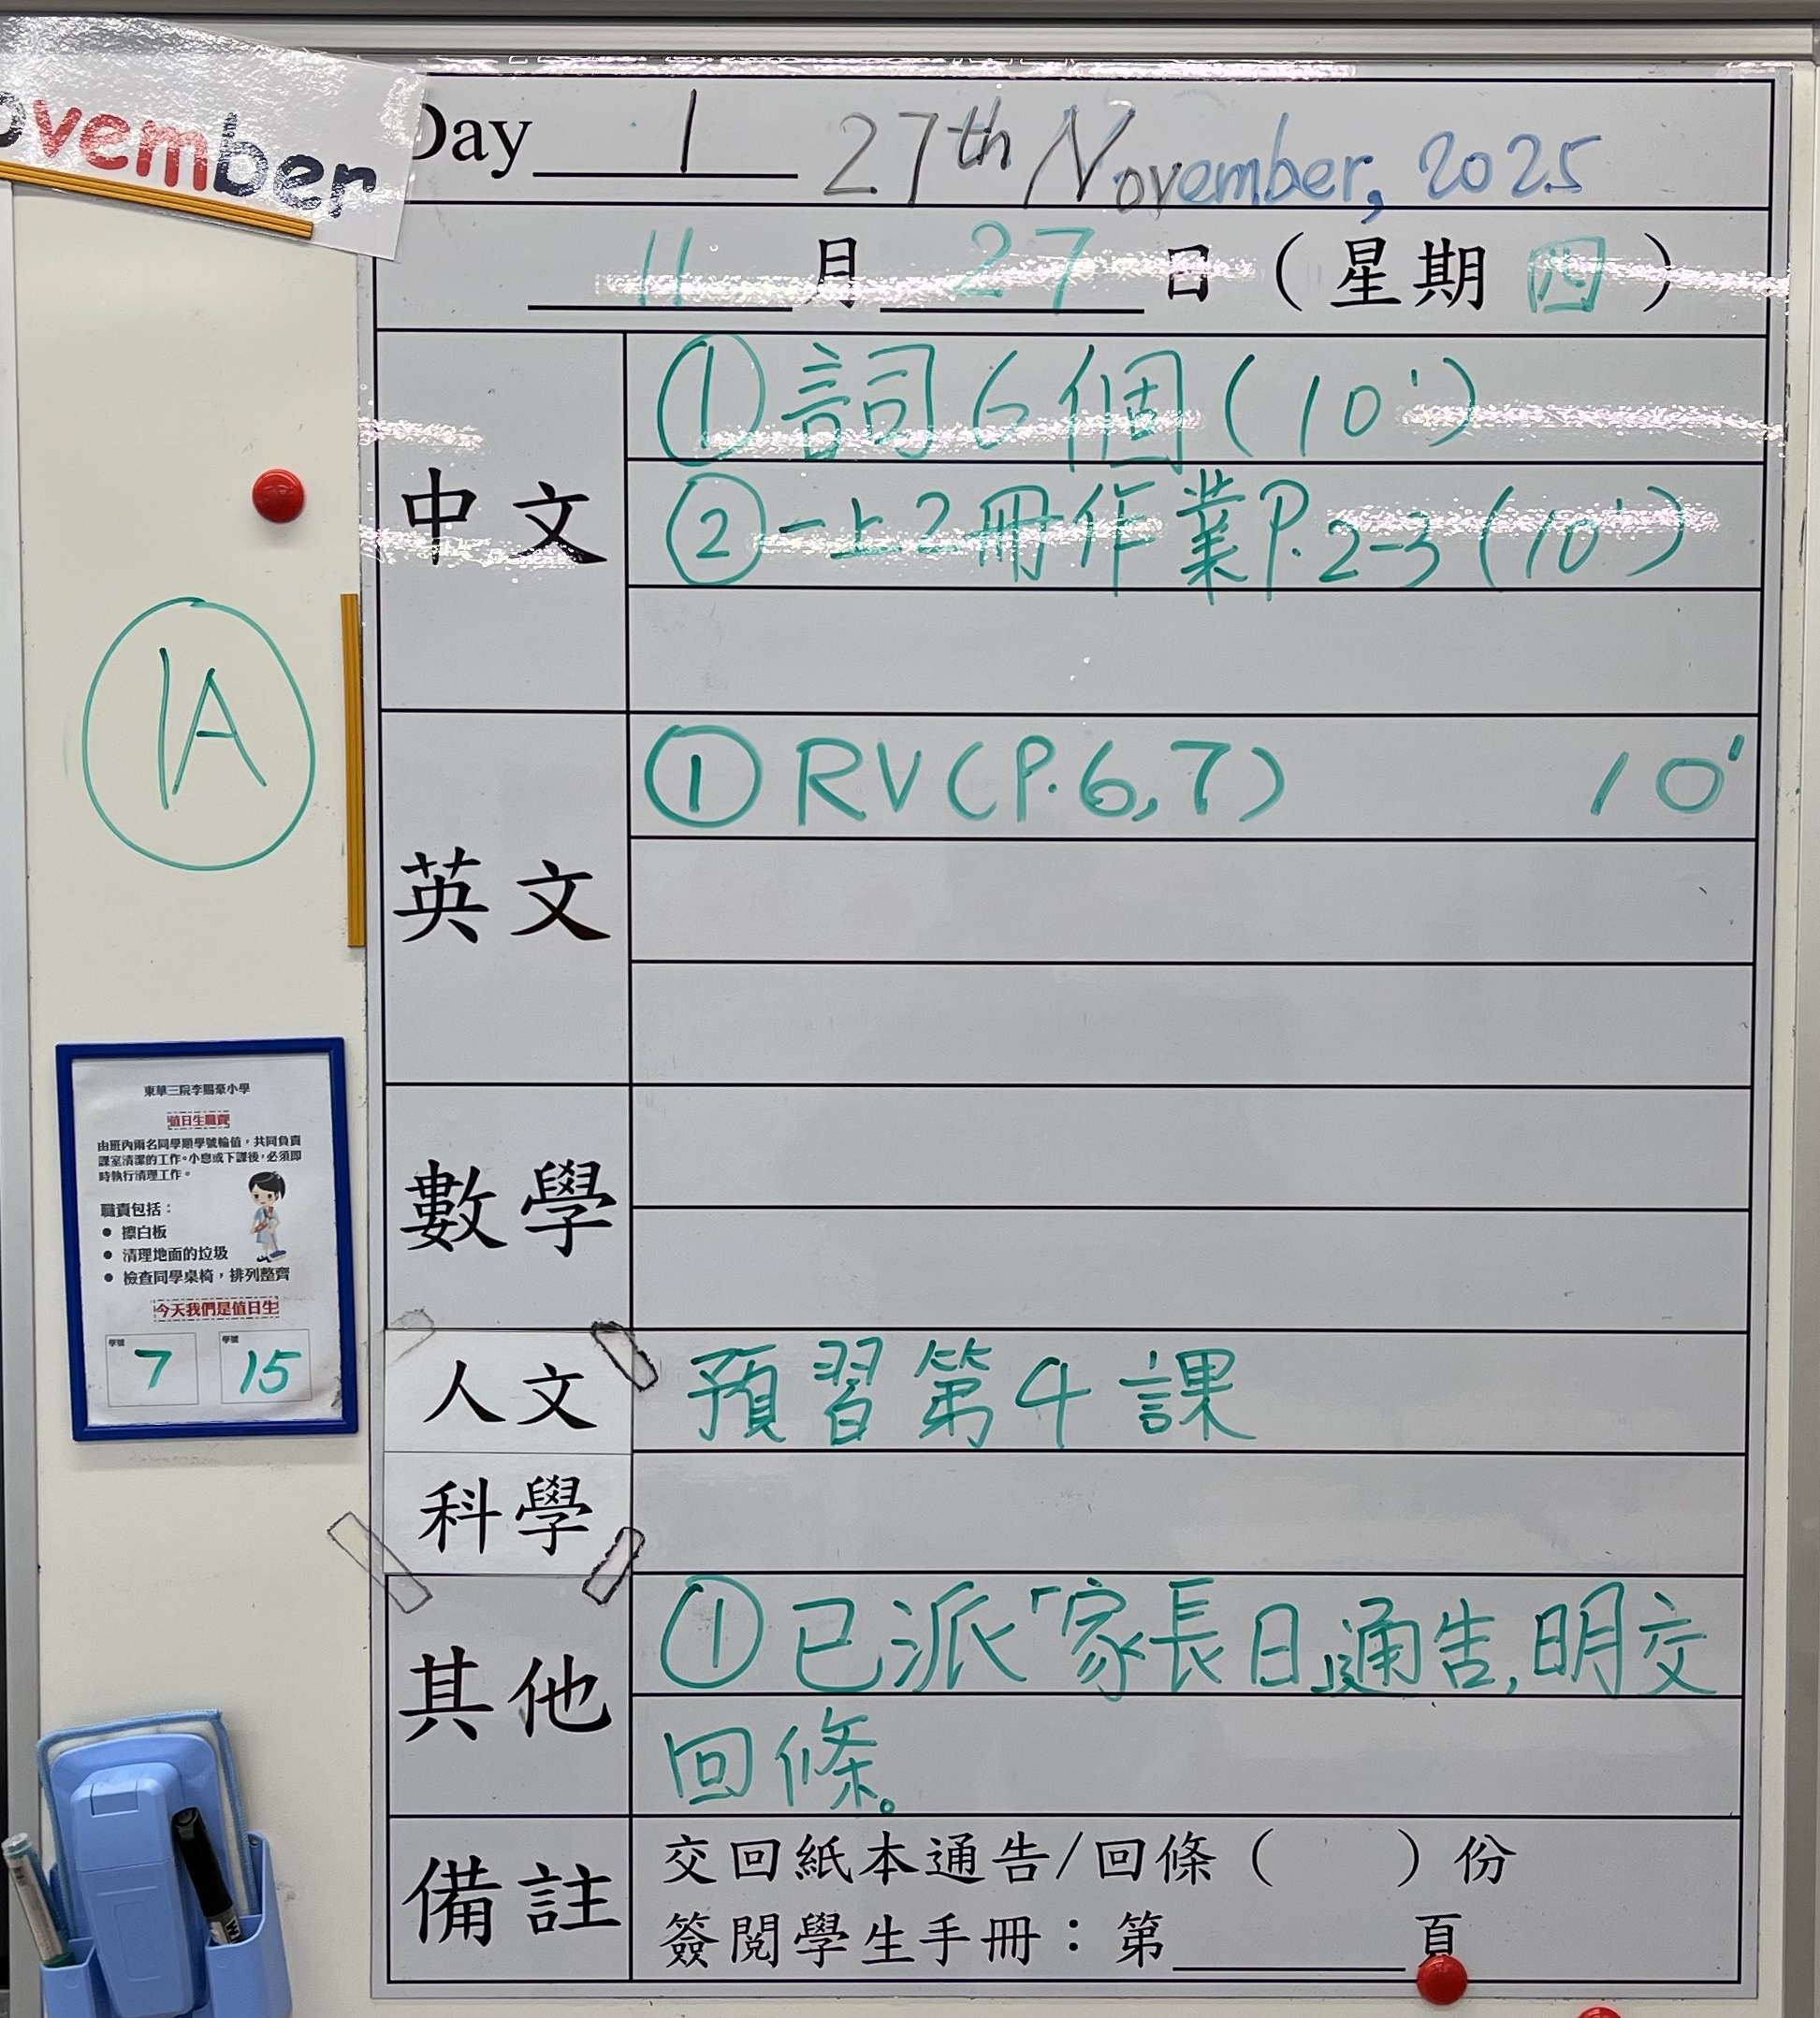 ovember
Day 1 27th November, 2025
11 月 27 日 ( 星期 四 )
中文
① 詞 6 個 ( 10' )
② 一上2冊作業P.2-3 (10')
1A
英文
① RV (P.6,7) 10'
數學
人文
預習第4課
科學
其他
① 已派「家長日」通告,明交
回條。
備註
交回紙本通告/回條 ( ) 份
簽閱學生手冊：第______頁
東華三院李賜豪小學
值日生職責
由班內兩名同學順學號輪值，共同負責
課室清潔的工作。小息或下課後，必須即
時執行清理工作。
職責包括：
● 擦白板
● 清理地面的垃圾
● 檢查同學桌椅，排列整齊
今天我們是值日生
學號 學號
7 15